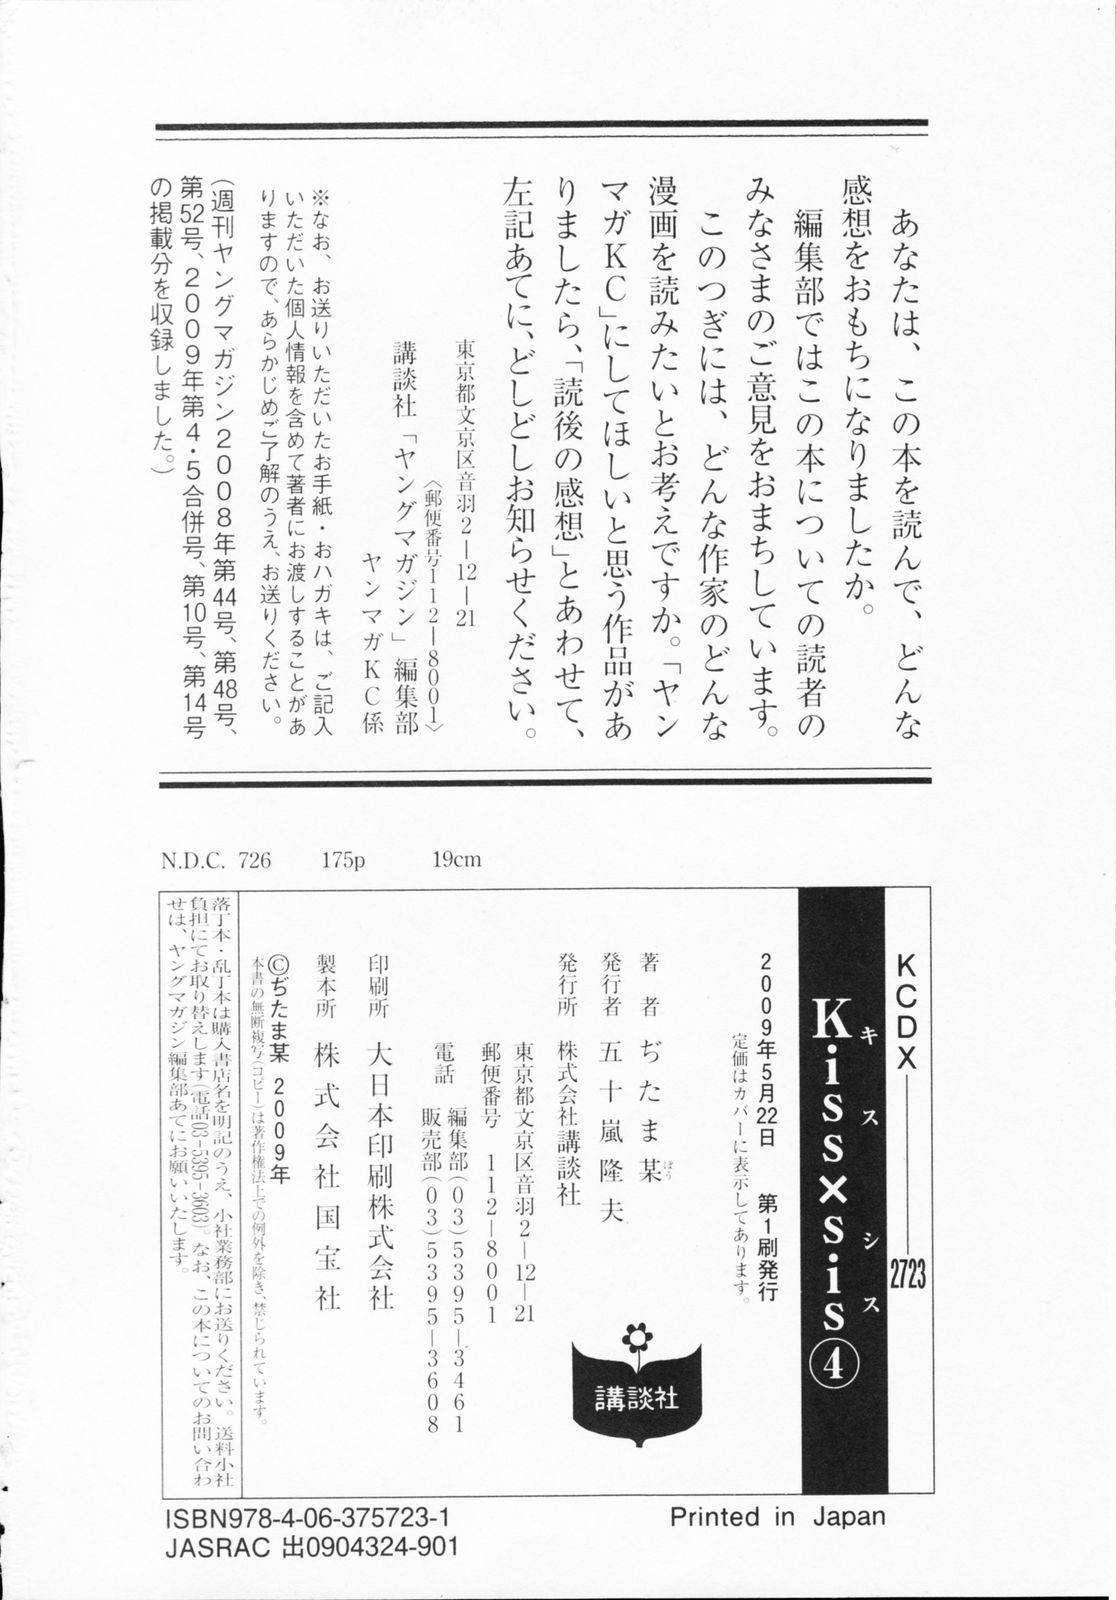 あなたは、この本を読んで、どんな
感想をおもちになりましたか。
編集部ではこの本についての読者の
みなさまのご意見をおまちしています。
このつぎには、どんな作家のどんな
漫画を読みたいとお考えですか。「ヤン
マガKC」にしてほしいと思う作品があ
りましたら、「読後の感想」とあわせて、
左記あてに、どしどしお知らせください。
東京都文京区音羽2―12―21
〈郵便番号112―8001〉
講談社「ヤングマガジン」編集部
ヤンマガKC係
※なお、お送りいただいたお手紙・おハガキは、ご記入
いただいた個人情報を含めて著者にお渡しすることがあ
りますので、あらかじめご了解のうえ、お送りください。
(週刊ヤングマガジン2008年第44号、第48号、
第52号、2009年第4・5合併号、第10号、第14号
の掲載分を収録しました。)
N.D.C. 726 175p 19cm
KCDX―2723
キスシス
Kiss×sis④
2009年5月22日 第1刷発行
定価はカバーに表示してあります。
著者 ぢたま某
ぼう
発行者 五十嵐隆夫
発行所 株式会社講談社
東京都文京区音羽2―12―21
郵便番号 112―8001
電話 編集部(03)5395―3461
販売部(03)5395―3608
印刷所 大日本印刷株式会社
製本所 株式会社国宝社
©ぢたま某 2009年
本書の無断複写(コピー)は著作権法上での例外を除き、禁じられています。
落丁本・乱丁本は購入書店名を明記のうえ、小社業務部にお送りください。送料小社
負担にてお取り替えします(電話03―5395―3603)。なお、この本についてのお問い合わ
せは、ヤングマガジン編集部あてにお願いいたします。
講談社
ISBN978-4-06-375723-1
Printed in Japan
JASRAC 出0904324-901